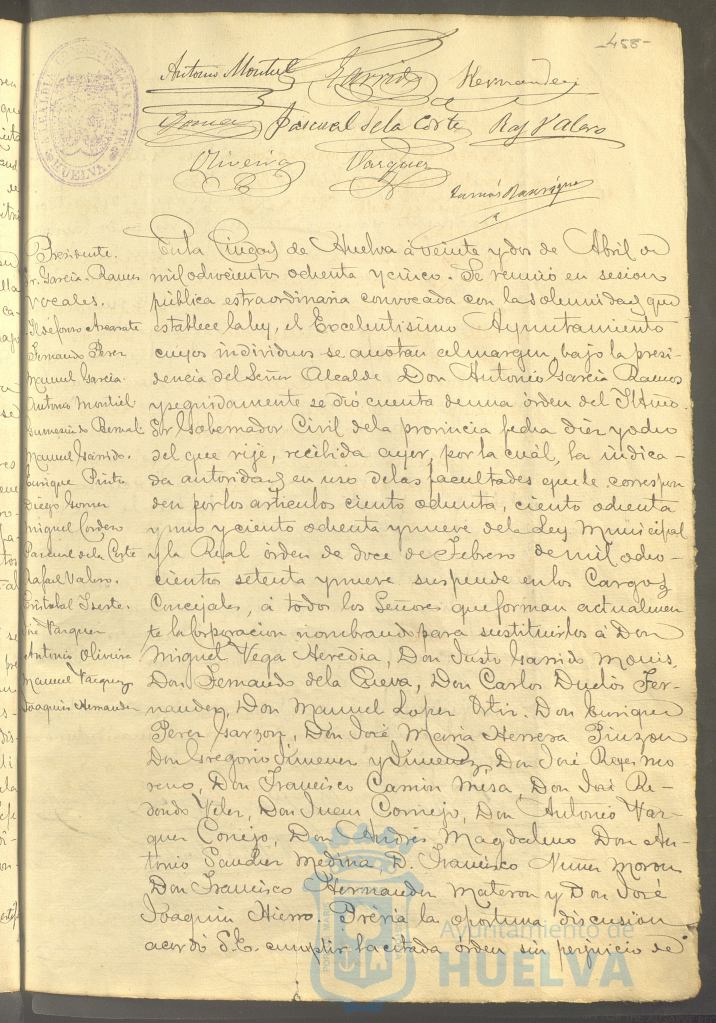 -458-
ALCALDIA CONSTITUCIONAL
HUELVA
Antonio Montiel Garrido Hernandez
Gomez Pascual de la Corte Raf Valero
Oliveira Vazquez
Presidente.
Sr. Garcia Ramos
Vocales.
Ildefonso Azcarate
Fernando Perez
Manuel Garcia
Antonio Montiel
Gumersindo Bernal
Manuel Garrido.
Enrique Pinto
Diego Gomez
Miguel Cordero
Pascual de la Corte
Rafael Valero.
Cristobal Iserte.
José Vazquez
Antonio Oliveira
Manuel Vazquez
Joaquin Hernandez
En la Ciudad de Huelva á veinte y dos de Abril de
mil ochocientos ochenta y cinco. Se reunió en sesion
pública estraordinaria convocada con la solemnidad que
establece la ley, el Excelentisimo Ayuntamiento
cuyos individuos se anotan al margen, bajo la presi-
dencia del Señor Alcalde Don Antonio Garcia Ramos
y seguidamente se dió cuenta de una órden del Iltmo.
Sr Gobernador Civil de la provincia fecha diez y ocho
del que rije, recibida ayer, por la cuál, la indica-
da autoridad en uso de las facultades que le correspon
den por los articulos ciento ochenta, ciento ochenta
y uno y ciento ochenta y nueve de la Ley Municipal
y la Real órden de doce de Febrero de mil ocho-
cientos setenta y nueve suspende en los Cargos
Concejales, á todos los Señores que forman actualmen
te la Corporacion nombrando para sustituirlos á Don
Miguel Vega Heredia, Don Justo Garrido Mouis,
Don Fernando de la Cueva, Don Carlos Duclós Fer-
nandez, Don Manuel Lopez Ortiz. Don Enrique
Perez Garzon, Don José Maria Herrera Pinzon
Don Gregorio Jimenez y Jimenez, Don José Reyes Mo
reno, Don Francisco Camin Misa, Don José Re-
dondo Velez, Don Juan Cornejo, Don Antonio Vaz-
quez Conejo, Don Andrés Magdaleno Don An-
tonio Sanchez Medina D. Francisco Nuñez Moron
Don Francisco Hernandez Materon y Don José
Joaquin Hierro. Prévia la oportuna discusion
acordó S.E. cumplir la citada órden sin perjuicio de
Ayuntamiento de
HUELVA